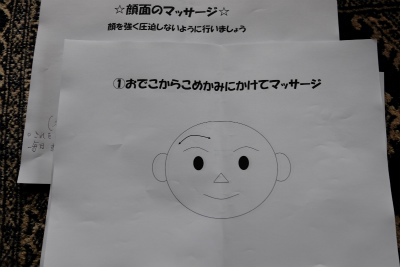 ☆顔面のマッサージ☆
顔を強く圧迫しないように行いましょう
①おでこからこめかみにかけてマッサージ